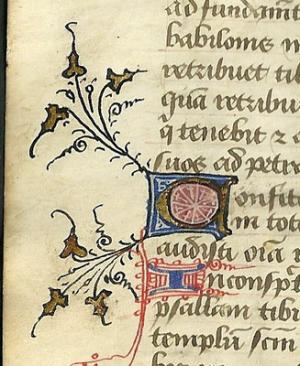 ad fundam̄t
babilonis m
retribuet ti
qua retribu
q̄ tenebit ⁊ a
suos ad petra
Confite
in tot
audisti oīa
In consp
psallam tibi
templū scm̄